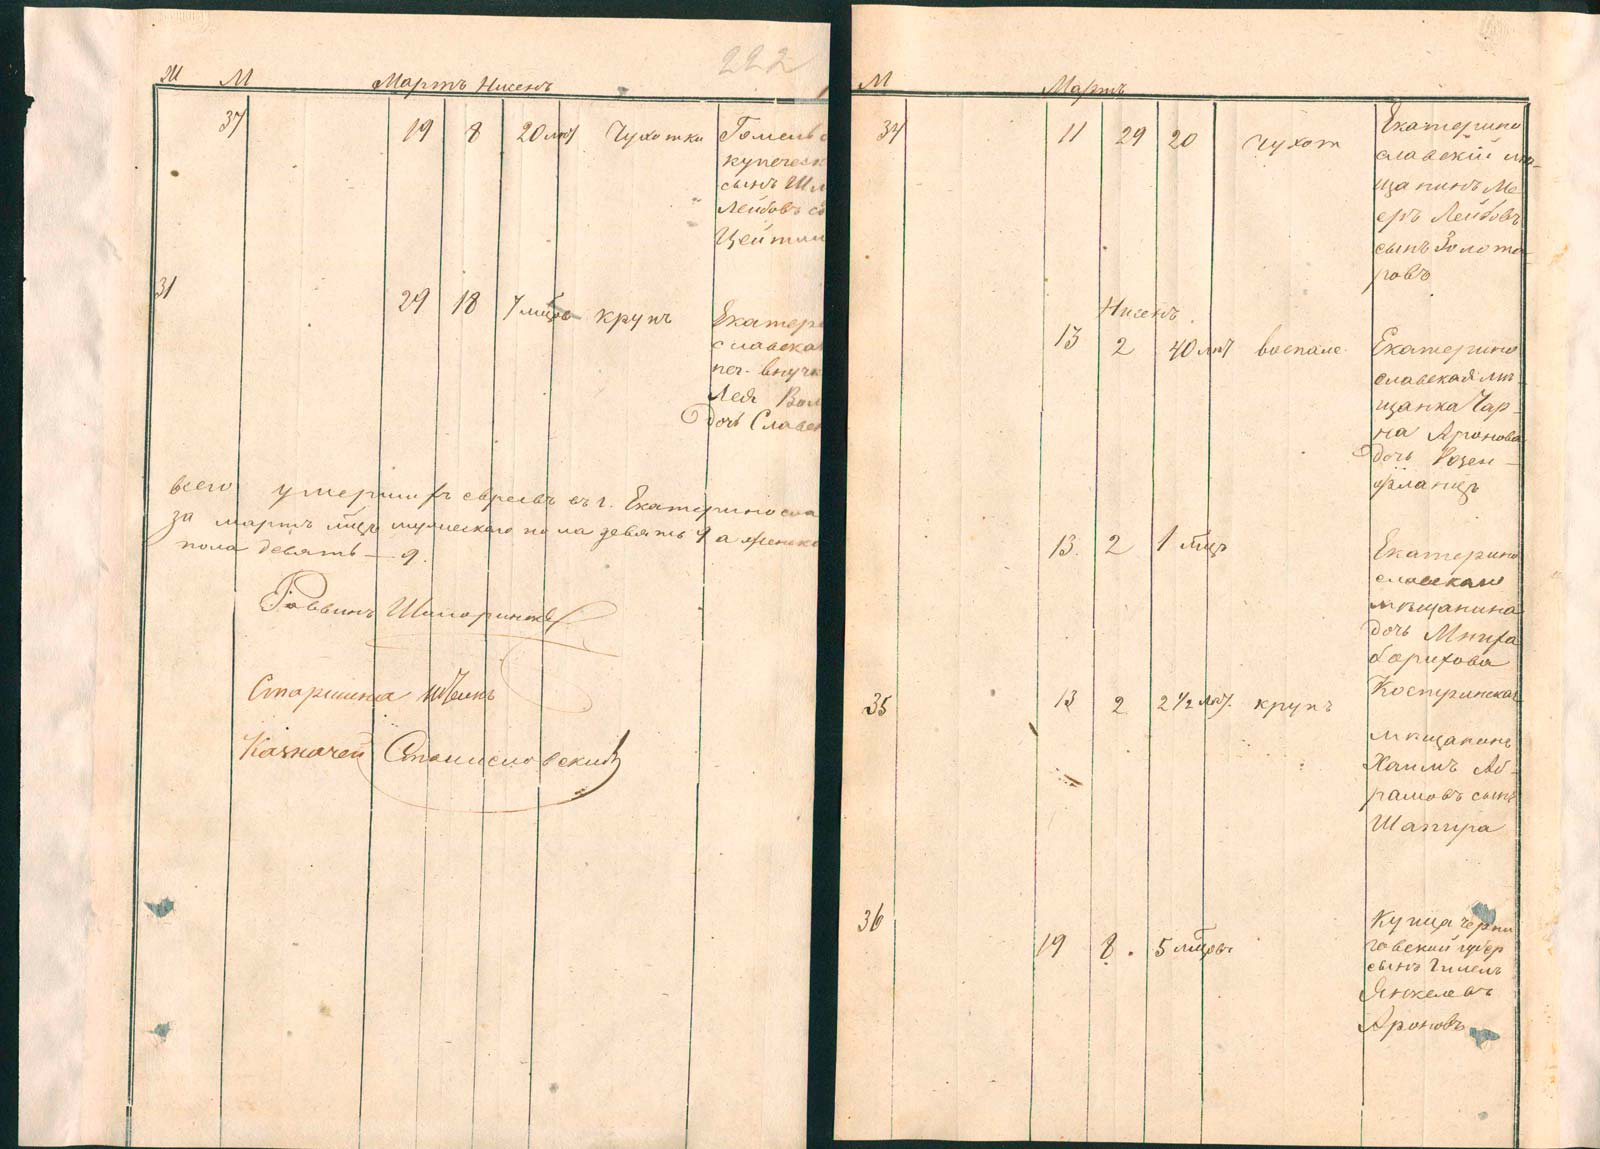 222
Ж М Мартъ Нисенъ
37 19 8 20 лѣт Чухотки Гомельс
купеческ
сынъ
Лейбовъ
Цейтлин
31 29 18 7 мѣс крупъ Екатери
славска
внучк
Лея Вол
дочь Славен
всего умершихъ евреевъ въ г. Екатериносла
за мартъ мѣсц мужескаго пола девять 9 а женска
пола девять — 9.
Раввинъ
Старшина Штейнъ
Казначей Станисловский
М Мартъ
34 11 29 20 чухот Екатерино
славскій мѣ-
щанинъ Ме
еръ Лейбовъ
сынъ Золота
ровъ
Нисенъ
13 2 40 лѣт воспале Екатерино
славская мѣ-
щанка Чар-
на Аронова
дочь Розен-
фланцъ
13. 2 1 мѣсц Екатерино
славскаго
мѣщанина
дочь
Борихова
35 13 2 2 1/2 лѣт. крупъ Костринская
мѣщанинъ
Хаимъ Аб-
рамовъ сынъ
Шапира
36 19 8. 5 мѣсц Купца черни
говской губер
сынъ Гилель
Янкелевъ
Ароновъ